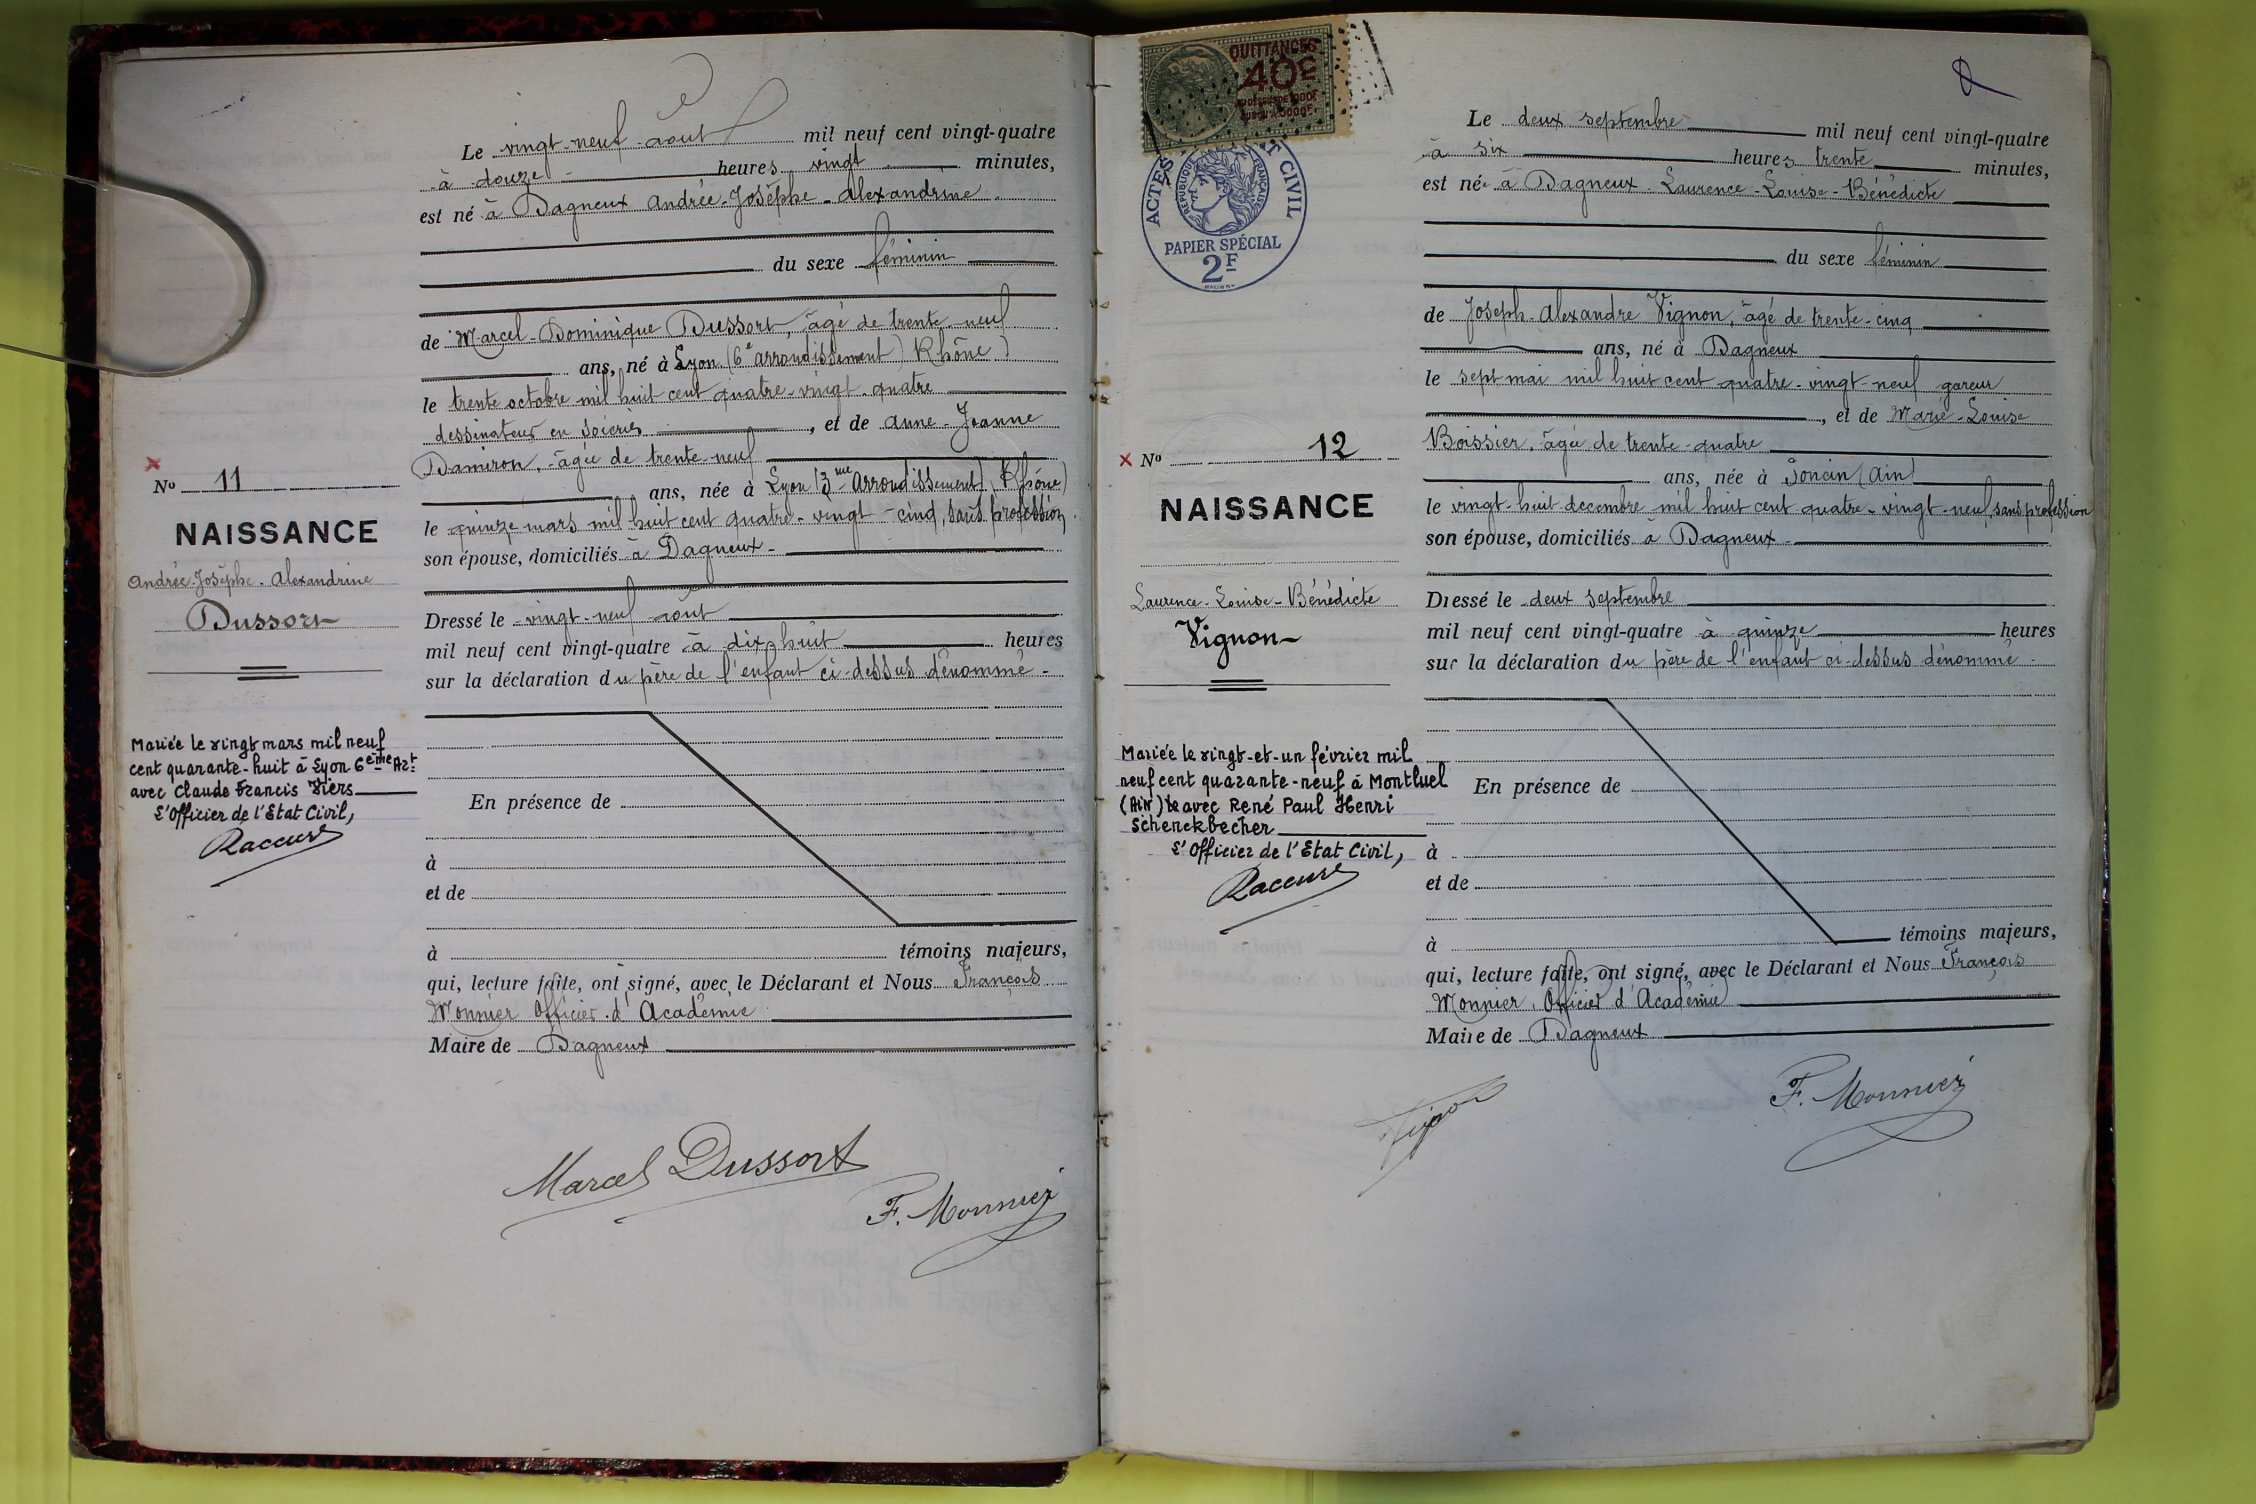 Le vingt-neuf août mil neuf cent vingt-quatre
à douze heures vingt minutes,
est né à Dagneux Andrée-Josèphe-Alexandrine
du sexe féminin
de Marcel-Dominique Dussort, âgé de trente-neuf
ans, né à Lyon (6e arrondissement) Rhône)
le trente octobre mil huit cent quatre-vingt-quatre
dessinateur en soieries, et de Anne-Jeanne
Damiron, âgée de trente-neuf
ans, née à Lyon (3me Arrondissement) (Rhône)
le quinze mars mil huit cent quatre-vingt-cinq, sans profession
son épouse, domiciliés à Dagneux
Dressé le vingt-neuf août
mil neuf cent vingt-quatre à dix huit heures
sur la déclaration du père de l'enfant ci-dessus dénommé
En présence de
à
et de
à témoins majeurs,
qui, lecture faite, ont signé, avec le Déclarant et Nous François
Monnier Officier d'Académie
Maire de Dagneux
Marcel Dussort
F. Monnier
No 11
NAISSANCE
Andrée-Josèphe-Alexandrine
Dussort
Mariée le vingt mars mil neuf
cent quarante-huit à Lyon 6ème Art
avec Claude Francis Viers
L'Officier de l'Etat Civil,
QUITTANCES
40c
ACTES ET CIVIL
RÉPUBLIQUE FRANÇAISE
PAPIER SPÉCIAL
2F
Le deux septembre mil neuf cent vingt-quatre
à six heures trente minutes,
est née à Dagneux Laurence-Louise-Bénédicte
du sexe féminin
de Joseph-Alexandre Vignon, âgé de trente-cinq
ans, né à Dagneux
le sept mai mil huit cent quatre-vingt-neuf gareur
, et de Marie-Louise
Boissier, âgée de trente-quatre
ans, née à Poncin (Ain)
le vingt-huit décembre mil huit cent quatre-vingt-neuf, sans profession
son épouse, domiciliés à Dagneux
Dressé le deux septembre
mil neuf cent vingt-quatre à quinze heures
sur la déclaration du père de l'enfant ci-dessus dénommé
En présence de
à
et de
à témoins majeurs,
qui, lecture faite, ont signé, avec le Déclarant et Nous François
Monnier, Officier d'Académie
Maire de Dagneux
Vignon
F. Monnier
No 12
NAISSANCE
Laurence-Louise-Bénédicte
Vignon
Mariée le vingt-et-un février mil
neuf cent quarante-neuf à Montluel
(Ain) avec René Paul Henri
Schenckbecher
L'Officier de l'Etat Civil,